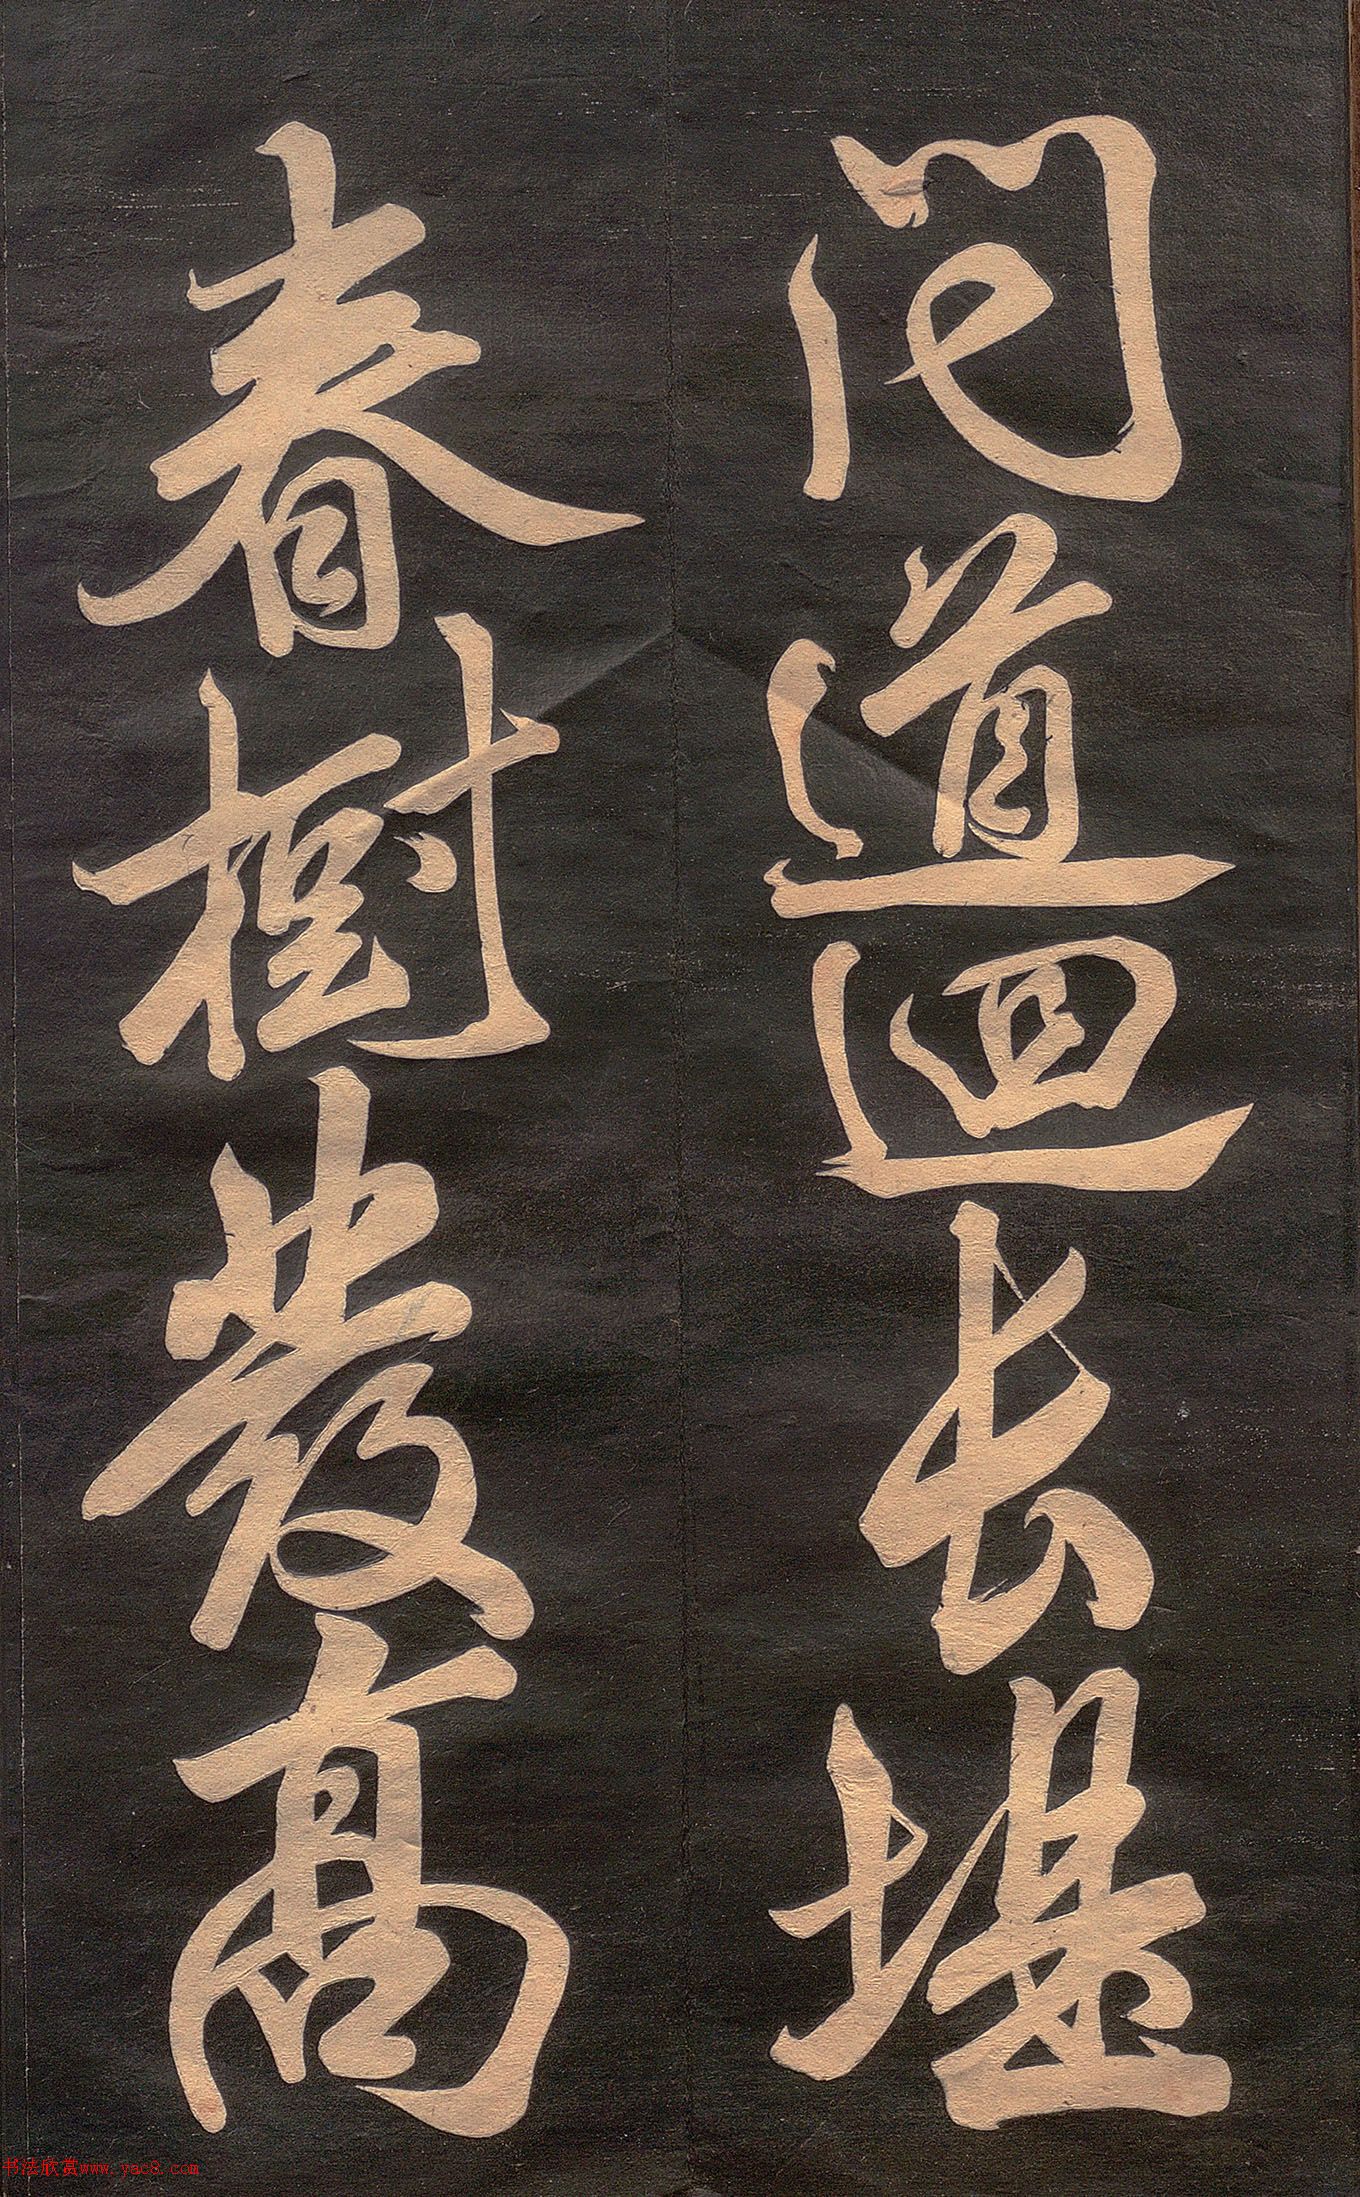 閣道迴長堪
春樹發高
书法欣赏www.yac8.com